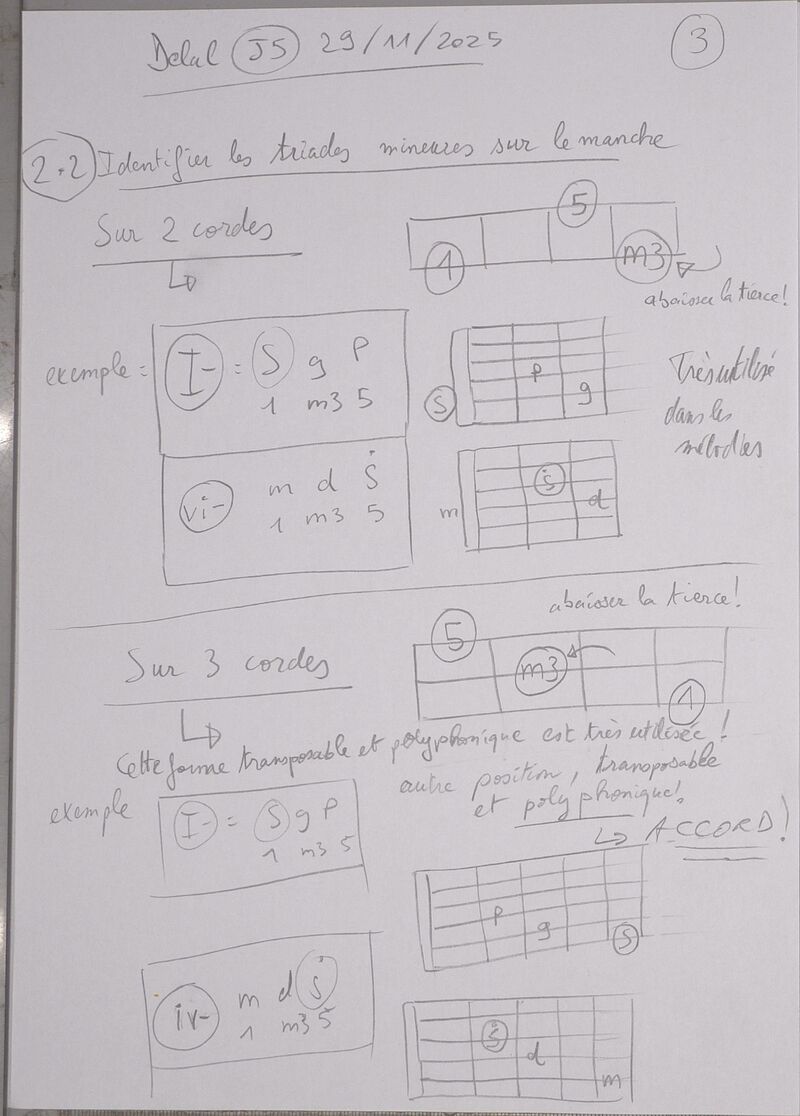 Delal J5 29/11/2025
3
2.2 Identifier les triades mineures sur le manche
Sur 2 cordes
5
1
m3
abaisser la tierce!
exemple = I- = S g P
1 m3 5
P
g
S
Très utilisé
dans les
mélodies
vi- m d Ṡ
1 m3 5
ṡ
m
d
abaisser la tierce!
Sur 3 cordes
5
m3
1
Cette forme transposable et polyphonique est très utilisée!
autre position, transposable
et polyphonique!
ACCORD!
exemple I- = S g P
1 m3 5
P
g
S
iv- m d ṡ
1 m3 5
ṡ
d
m